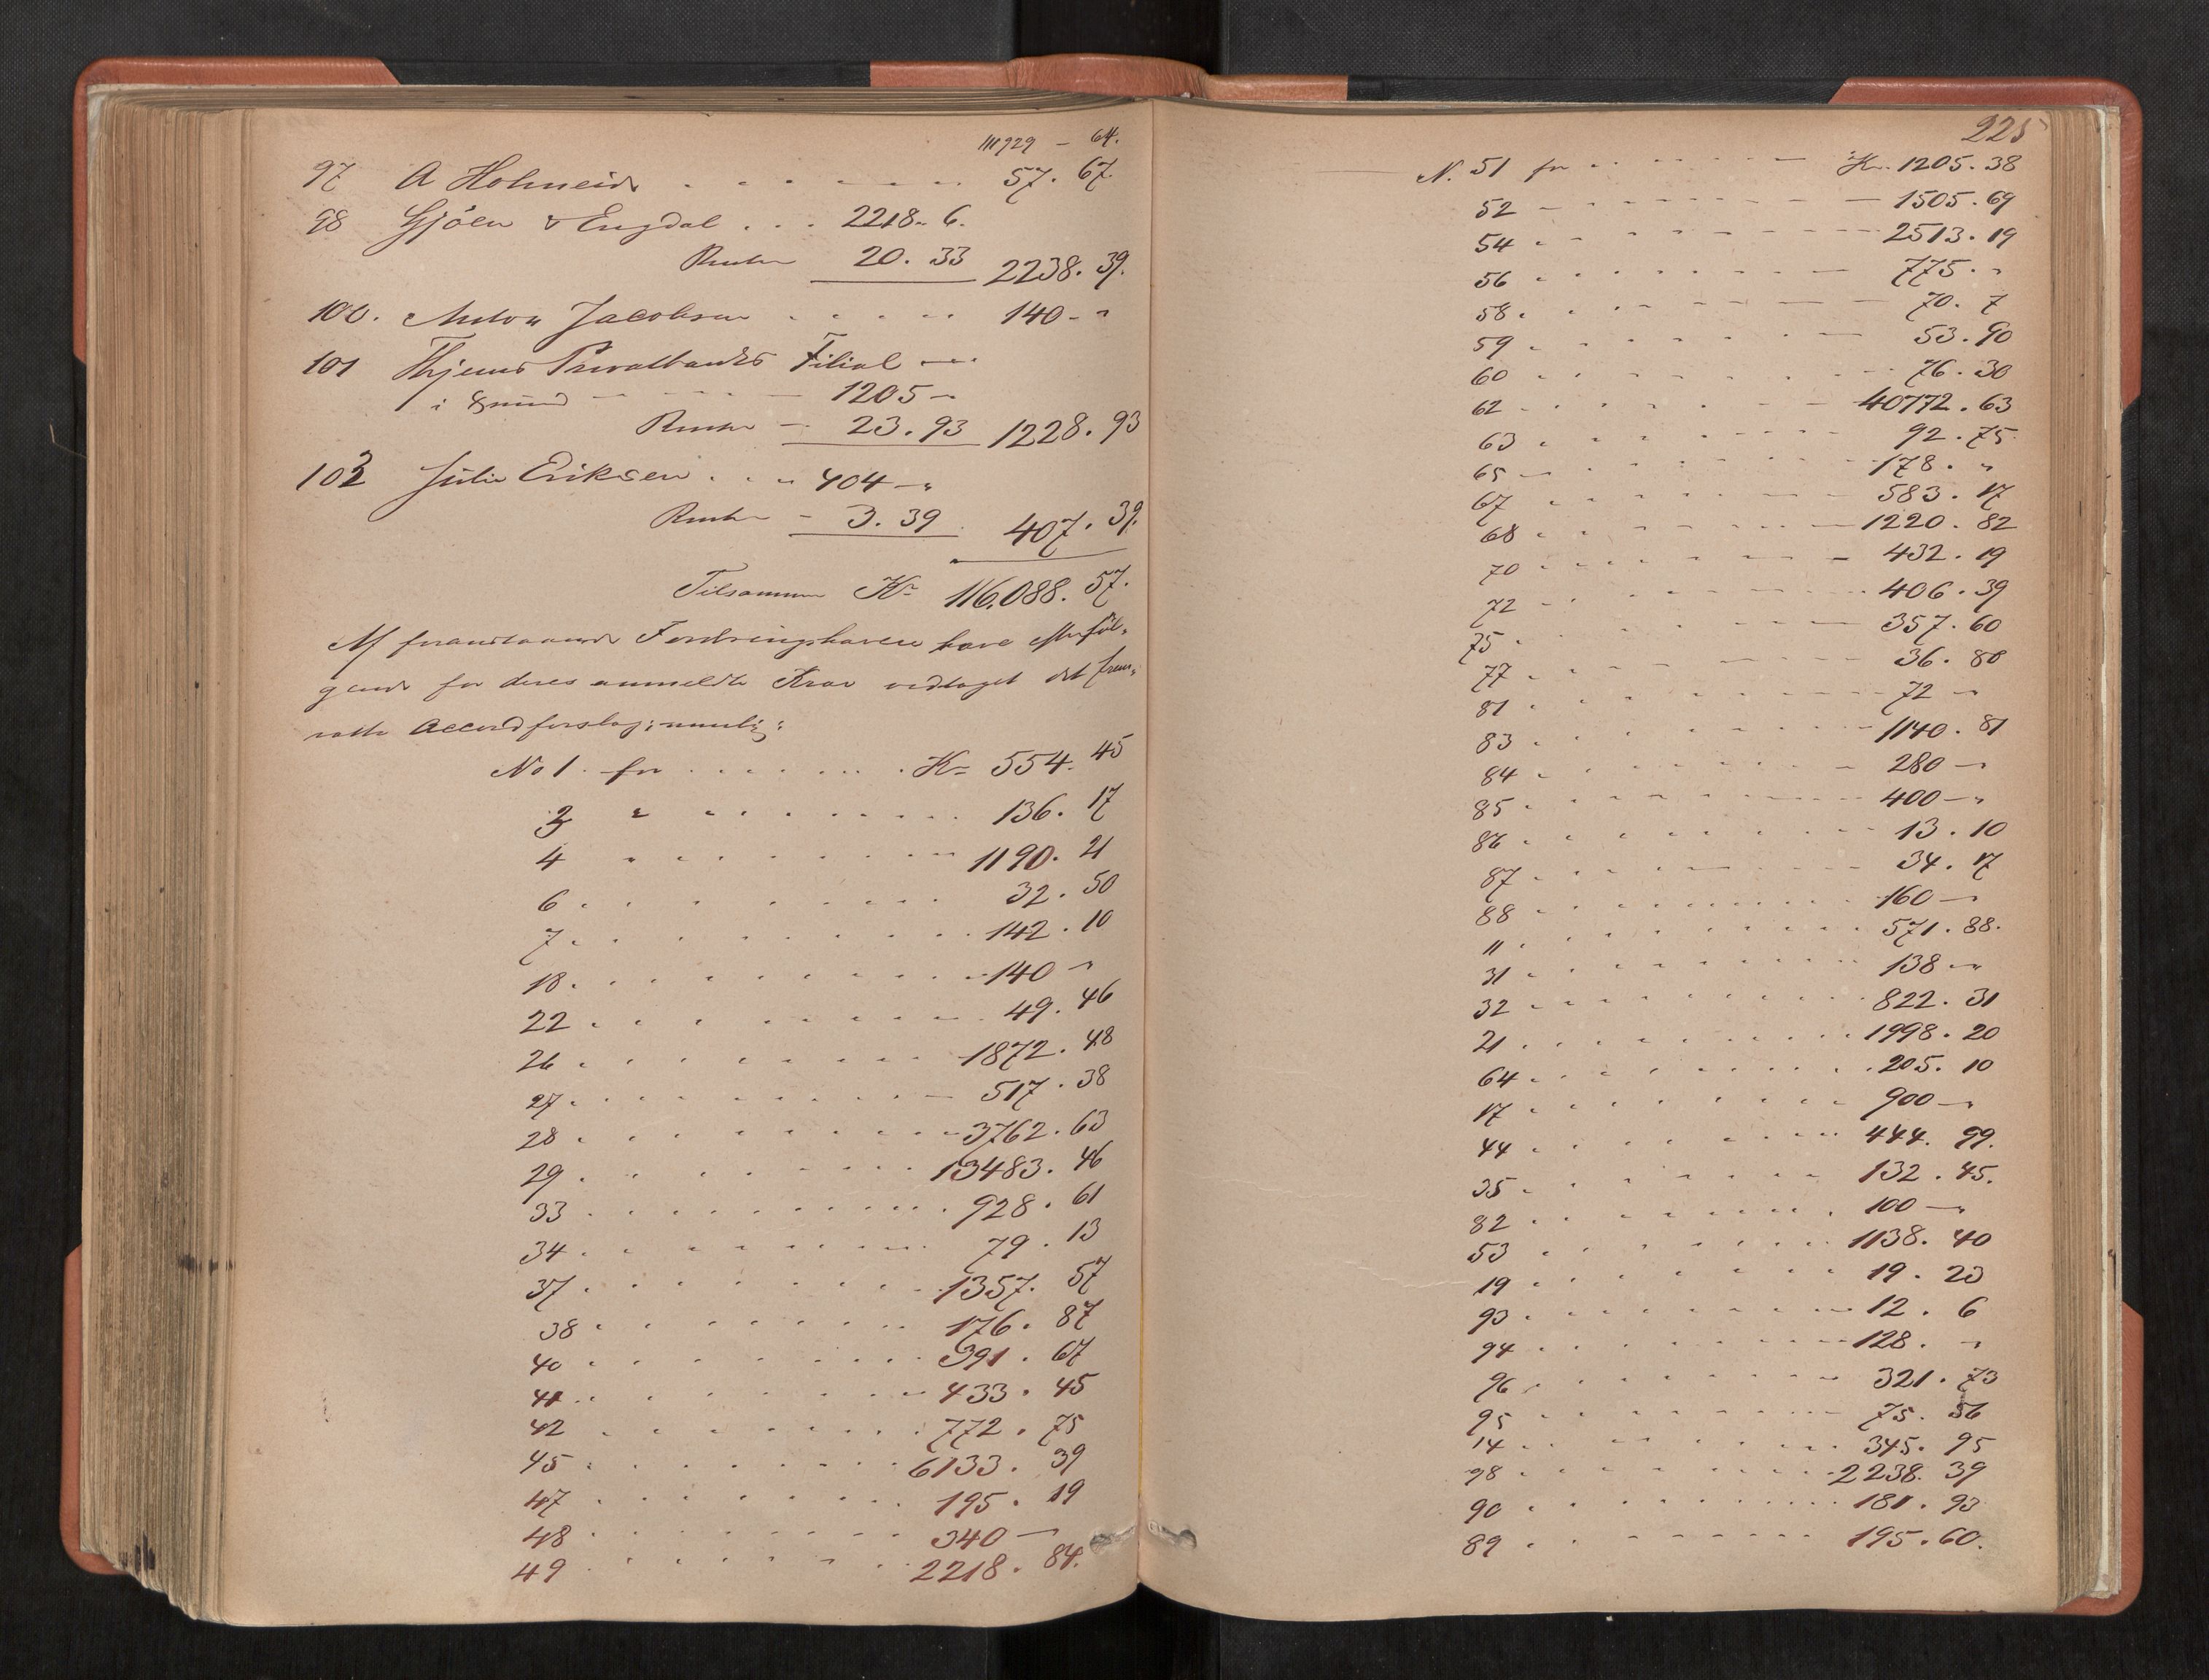 111929 - 64.
97 A Holmeide . . . . . . 57. 67.
98 Gjöen & Engdal . . . 2218. 6.
Renter 20. 33 2238. 39.
100. Anton Jacobsen . . . . . 140 - "
101 Thjems Privatbanks Filial
i - - - - 1205 - "
Renter - 23. 93 1228. 93
103 Julie Eriksen . . . 404 - "
Renter - 3. 39 407. 39.
Tilsammen Kr 116.088. 57.
Af foranstaaende Fordringshavere have efterföl-
gende for deres anmeldte Krav vedtaget det frem-
satte Accordforslag; nemlig:
No 1. for . . . . . . Kr 554. 45
3 " . . . . . . 136. 17
4 " . . . . . . 1190. 21
6 . . . . . . 32. 50
7 . . . . . . 142. 10
18 . . . . . . 140 - "
22 . . . . . . 49. 46
26 . . . . . . 1872. 48
27 . . . . . . 517. 38
28 . . . . . . 3762. 63
29 . . . . . . 13483. 46
33 . . . . . . 928. 61
34 . . . . . . 79. 13
37 . . . . . . 1357. 57
38 . . . . . . 176. 87
40 . . . . . . 391. 67
41 . . . . . . 433. 45
42 . . . . . . 772. 75
45 . . . . . . 6133. 39
47 . . . . . . 195. 19
48 . . . . . . 340 -
49 . . . . . . 2218. 84.
225
N. 51 for . . . . . . Kr. 1205. 38
52 . . . . . . 1505. 69
54 . . . . . . 2513. 19
56 . . . . . . 775. "
58 . . . . . . 70. 7
59 . . . . . . 53. 90
60 . . . . . . 76. 30
62 . . . . . . 40772. 63
63 . . . . . . 92. 75
65 . . . . . . 178. "
67 . . . . . . 583. 17
68 . . . . . . 1220. 82
70 . . . . . . 432. 19
72 . . . . . . 406. 39
75 . . . . . . 357. 60
77 . . . . . . 36. 80
81 . . . . . . 72 - "
83 . . . . . . 1140. 81
84 . . . . . . 280 - "
85 . . . . . . 400 - "
86 . . . . . . 13. 10
87 . . . . . . 34. 17
88 . . . . . . 160 - "
11 . . . . . . 571. 88.
31 . . . . . . 138 - "
32 . . . . . . 822. 31
21 . . . . . . 1998. 20
64 . . . . . . 205. 10
17 . . . . . . 900 - "
44 . . . . . . 444. 99.
35 . . . . . . 132. 45.
82 . . . . . . 100 - "
53 . . . . . . 1138. 40
19 . . . . . . 19. 23
93 . . . . . . 12. 6
94 . . . . . . 128. "
96 . . . . . . 321. 73
95 . . . . . . 75. 56
14 . . . . . . 345. 95
98 . . . . . . 2238. 39
90 . . . . . . 181. 93
89 . . . . . . 195. 60.